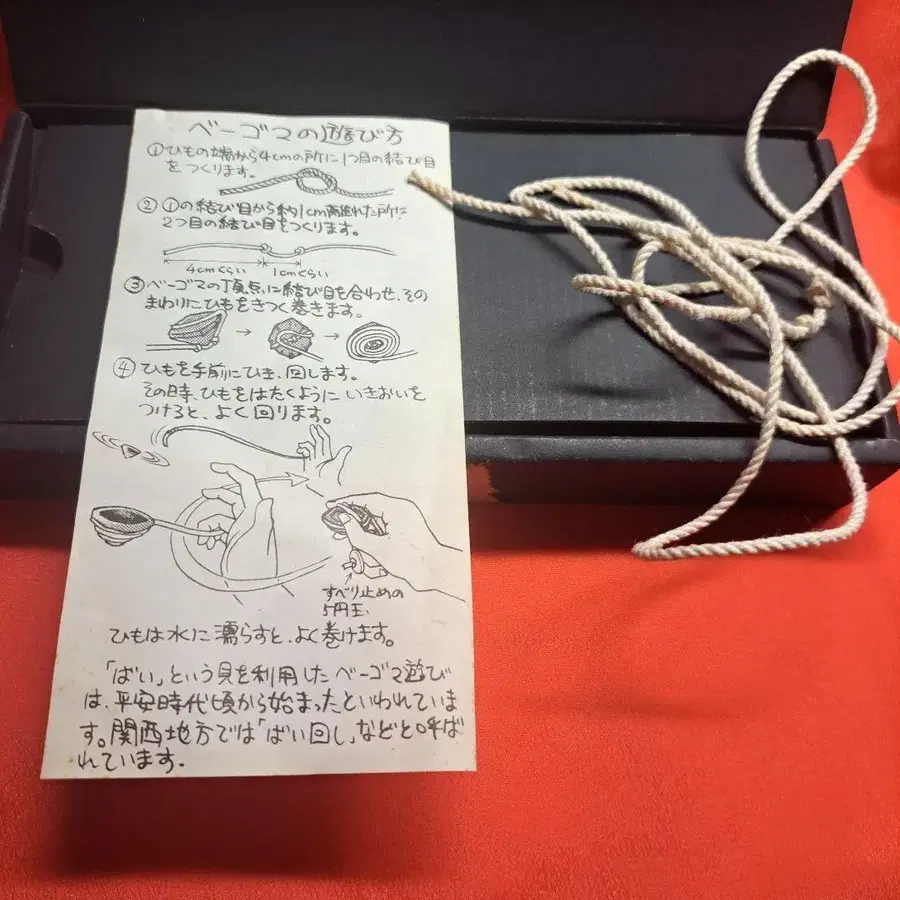 ベーゴマの遊び方
①ひもの端から4cmの所に1つ目の結び目
をつくります。
②①の結び目から約1cm離れた所に
2つ目の結び目をつくります。
4cmくらい 1cmくらい
③ベーゴマの頂点に結び目を合わせ、その
まわりにひもをきつく巻きます。
④ひもを手前にひき、回します。
その時、ひもをはたくように いきおいを
つけると、よく回ります。
すべり止めの
5円玉
ひもは水に濡らすと、よく巻けます。
「ばい」という貝を利用したベーゴマ遊び
は、平安時代頃から始まったといわれていま
す。関西地方では「ばい回し」などと呼ば
れています。